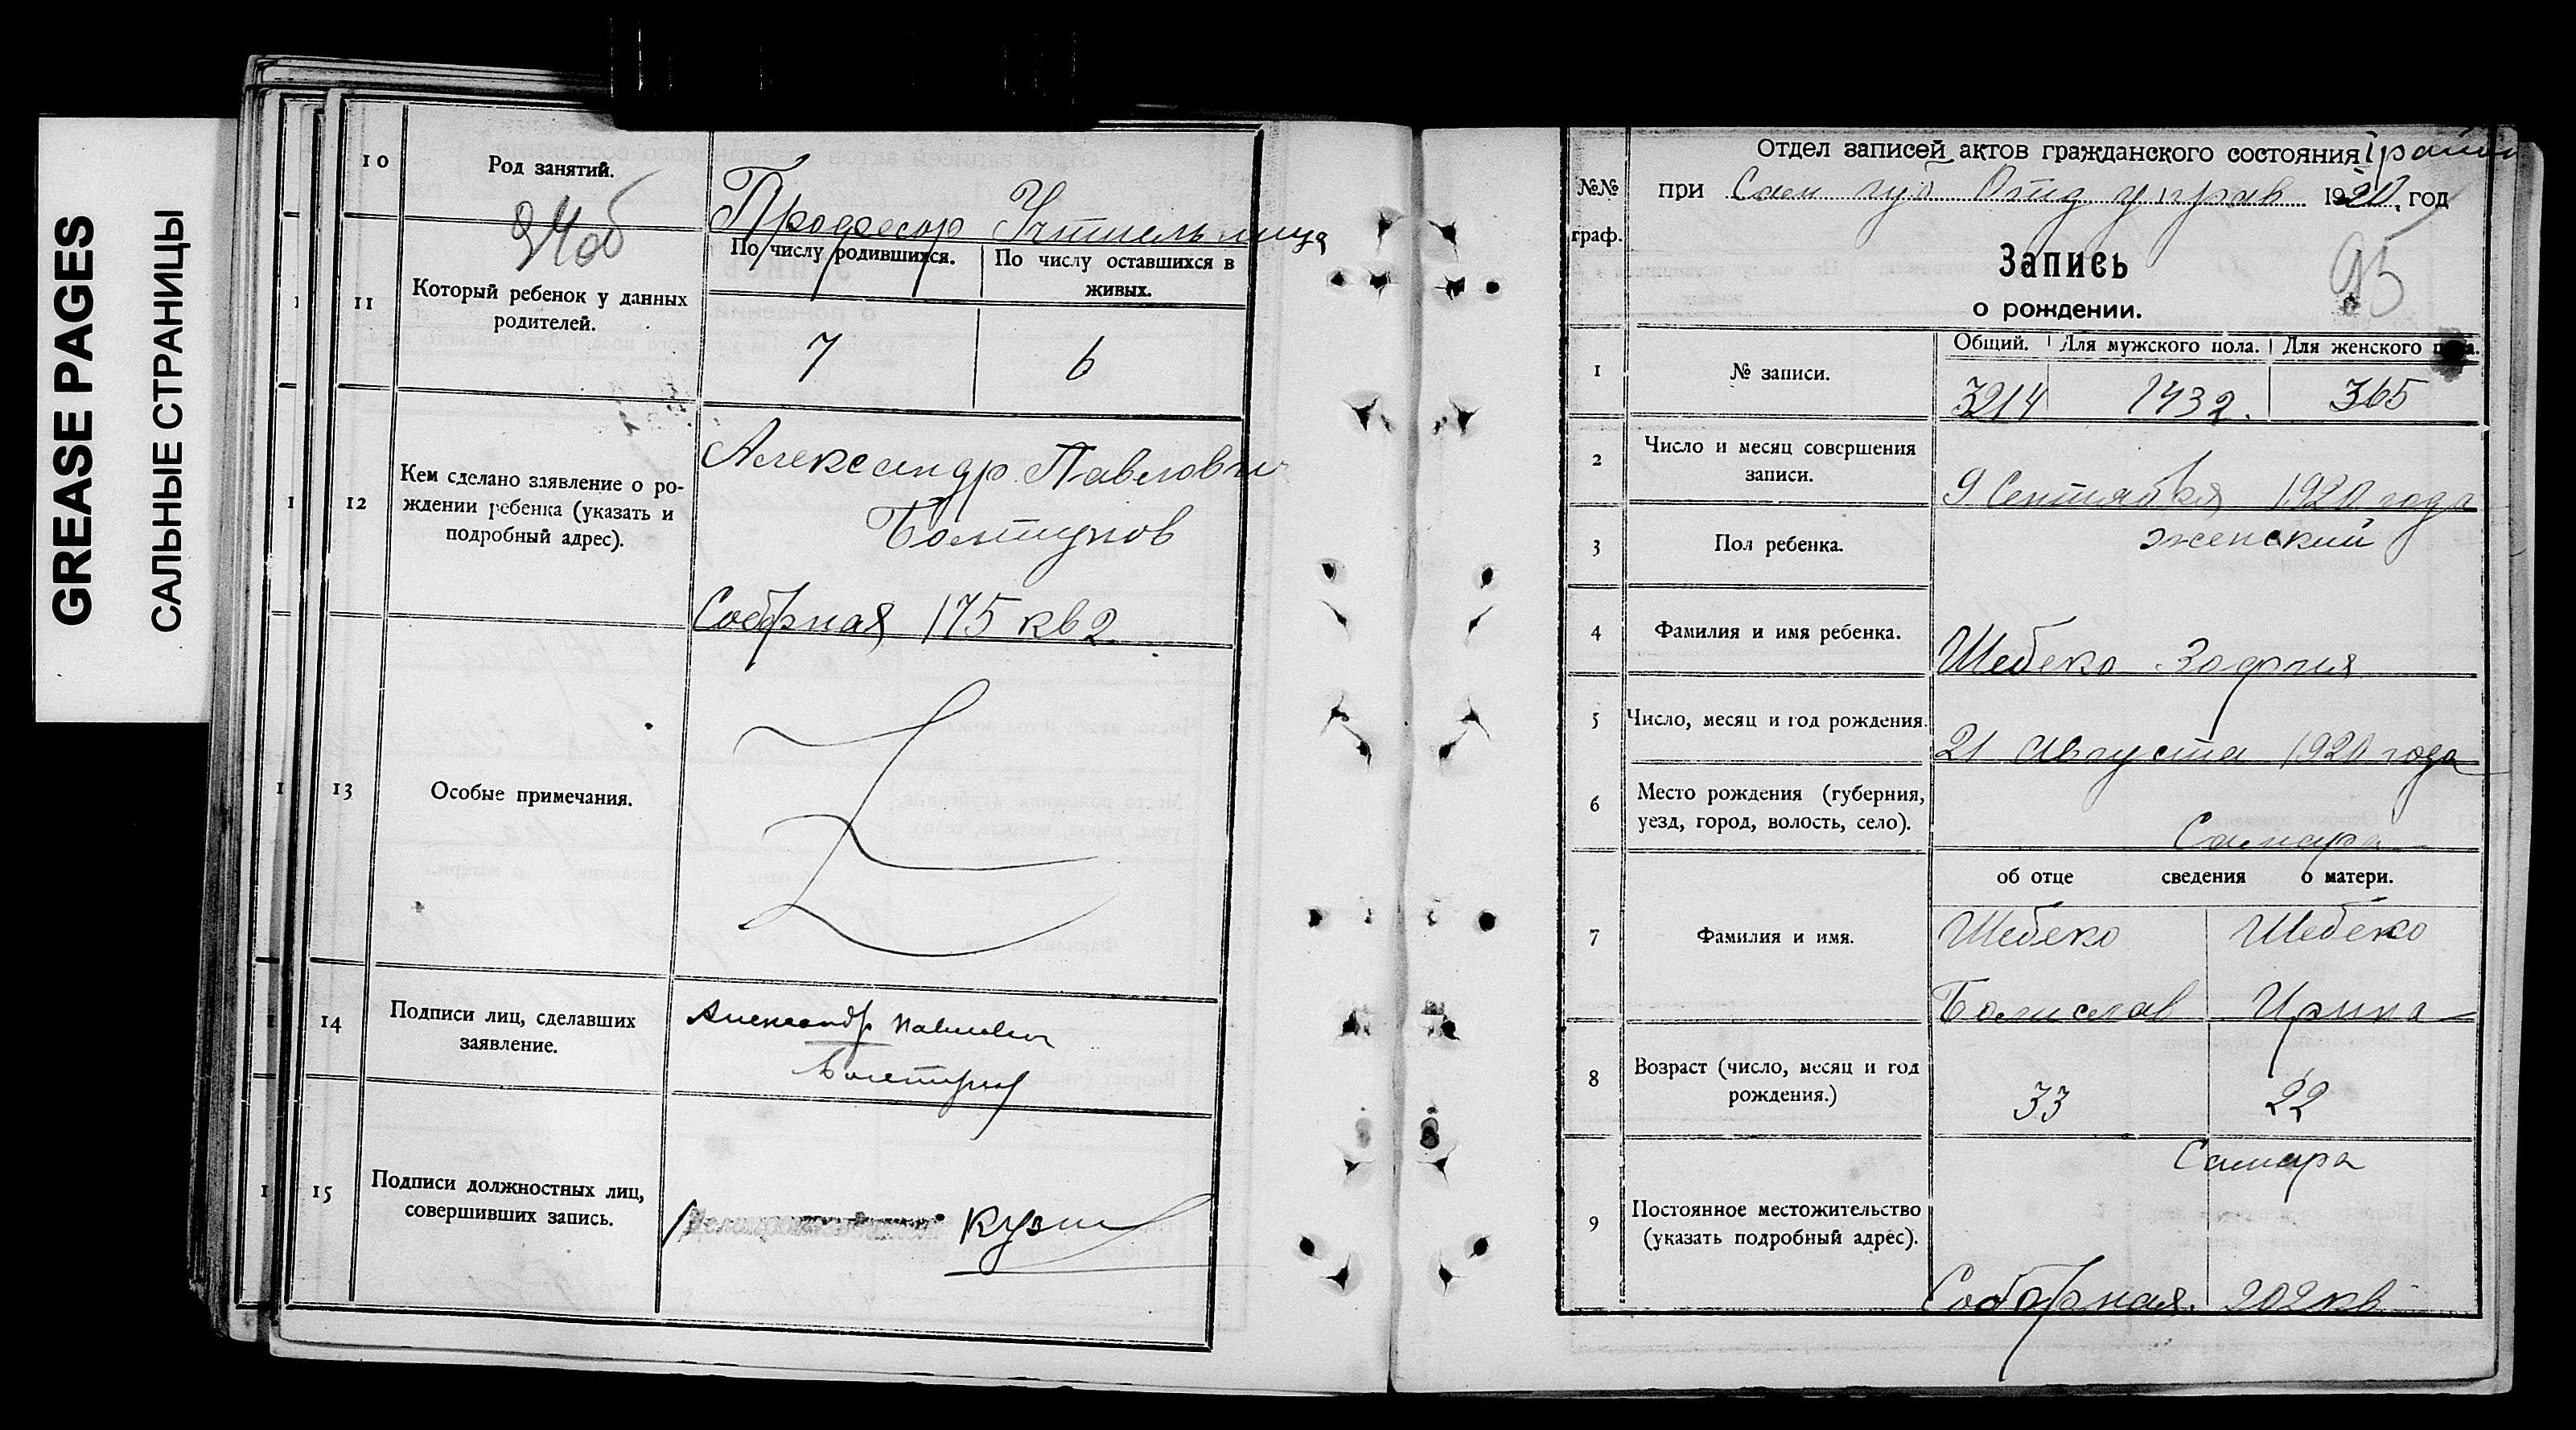 GREASE PAGES
САЛЬНЫЕ СТРАНИЦЫ
10 Род занятий. Професор Учительница
11 Который ребенок у данных родителей.
По числу родившихся. По числу оставшихся в живых.
7 6
12 Кем сделано заявление о ро-
ждении ребенка (указать и
подробный адрес).
Александр Павлович
Болтунов
Соборная 175 кв 2
13 Особые примечания.
14 Подписи лиц, сделавших
заявление.
Александр Павлович
Болтунов
15 Подписи должностных лиц,
совершивших запись.
Отдел записей актов гражданского состояния 1 район
№№ граф.
при Сам гул Отд управ 1920 год
95
Запись
о рождении.
1 № записи.
Общий. Для мужского пола. Для женского пола.
3214 1432. 365
2 Число и месяц совершения
записи.
9 Сентября 1920 года
3 Пол ребенка. женский
4 Фамилия и имя ребенка. Шебеко Зофия
5 Число, месяц и год рождения. 21 Августа 1920 года
6 Место рождения (губерния,
уезд, город, волость, село).
Самара
об отце сведения о матери.
7 Фамилия и имя.
Шебеко Шебеко
Болислав Ирина
8 Возраст (число, месяц и год
рождения.)
33 22
Самара
9 Постоянное местожительство
(указать подробный адрес).
Соборная. 202 кв